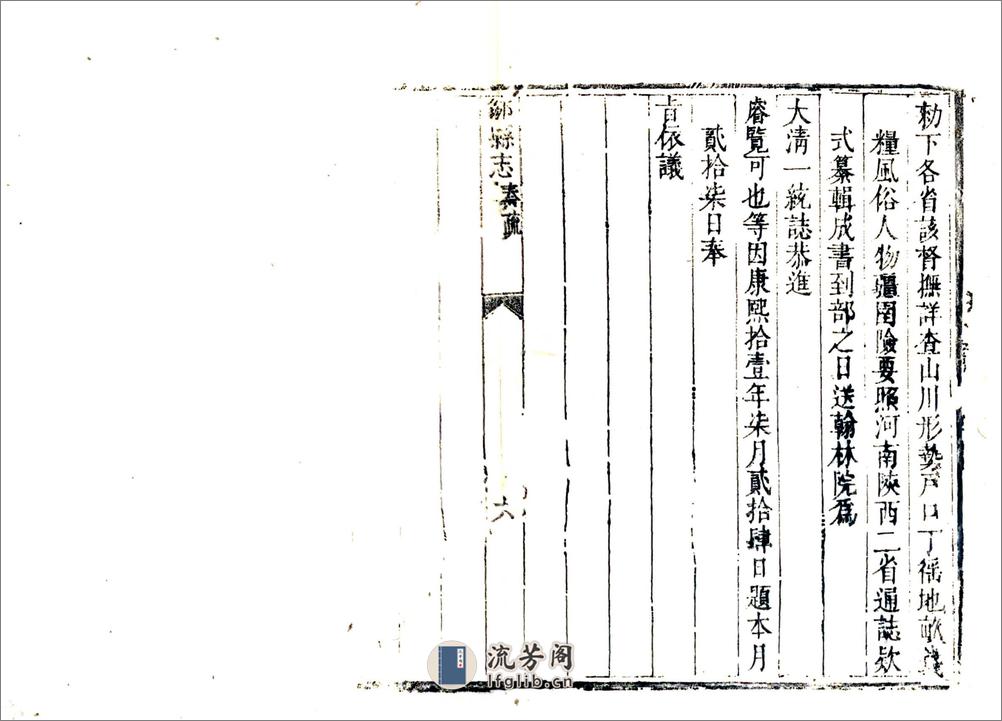 勑下各省該督撫詳查山川形勢戶口丁徭地畝錢
糧風俗人物疆圉險要照河南陝西二省通誌欵
式纂輯成書到部之日送翰林院為
大清一統誌恭進
睿覽可也等因康熙拾壹年柒月貳拾肆日題本月
貳拾柒日奉
旨依議
鄒縣志 奏疏 六
流芳阁
lfglib.cn